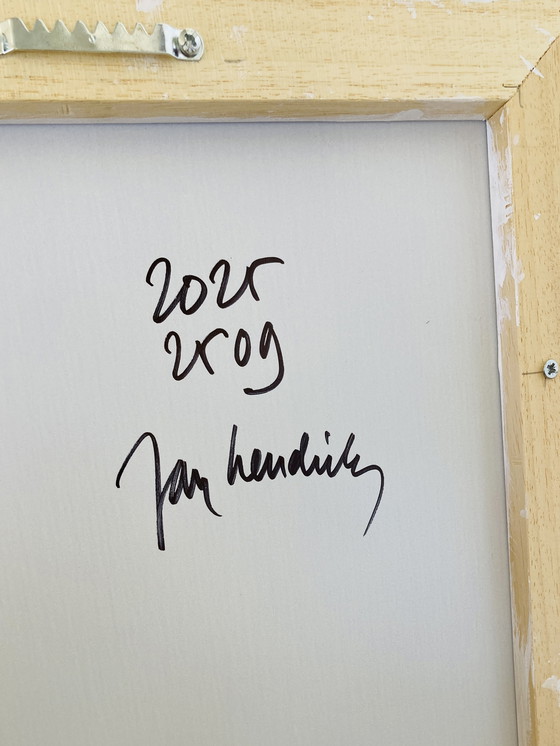 2025
2509
Jan Hendriks